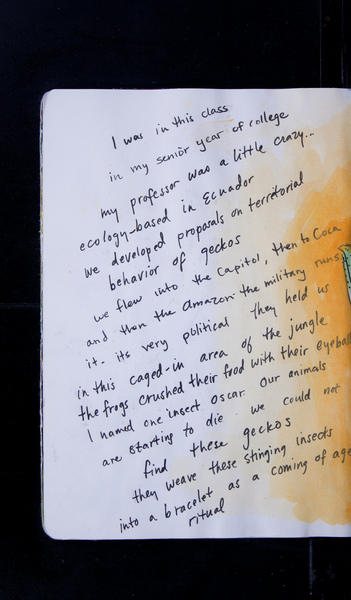 I was in this class
in my senior year of college
my professor was a little crazy...
ecology-based in Ecuador
we developed proposals on territorial
behavior of geckos
we flew into the Capitol, then to Coca
and then the Amazon. the military runs
it. its very political they held us
in this caged-in area of the jungle
the frogs crushed their food with their eyeballs
I named one insect oscar. our animals
are starting to die we could not
find these geckos
they weave these stinging insects
into a bracelet as a coming of age
ritual